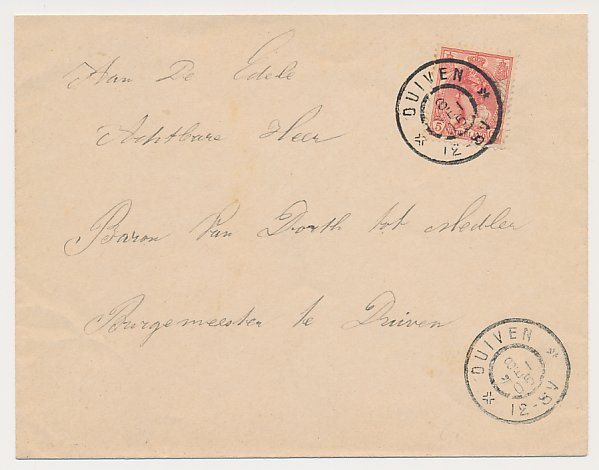 Aan De Edele
Achtbare Heer
Baron Van Dorth tot Medler
Burgemeester te Duiven
DUIVEN
5
DUIVEN